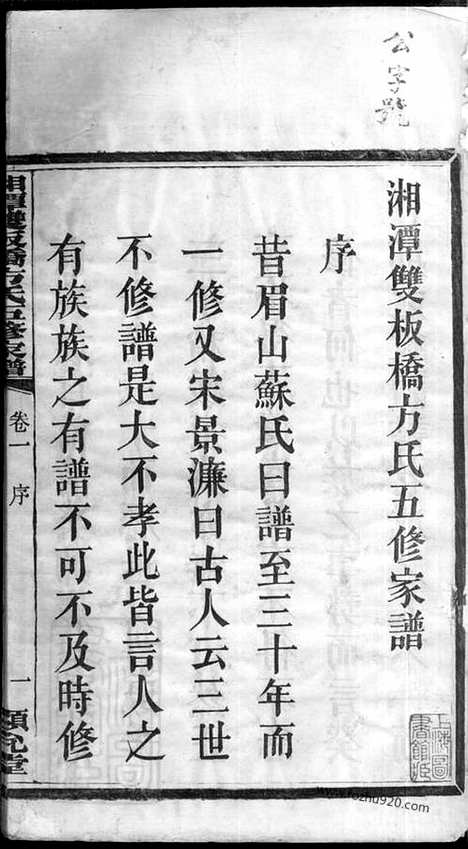 公字號
湘潭雙板橋方氏五修家譜
序
昔眉山蘇氏曰譜至三十年而
一修又宋景濂曰古人云三世
不修譜是大不孝此皆言人之
有族族之有譜不可不及時修
湘潭雙板橋方氏五修家譜
卷一 序
一
上海圖書館藏